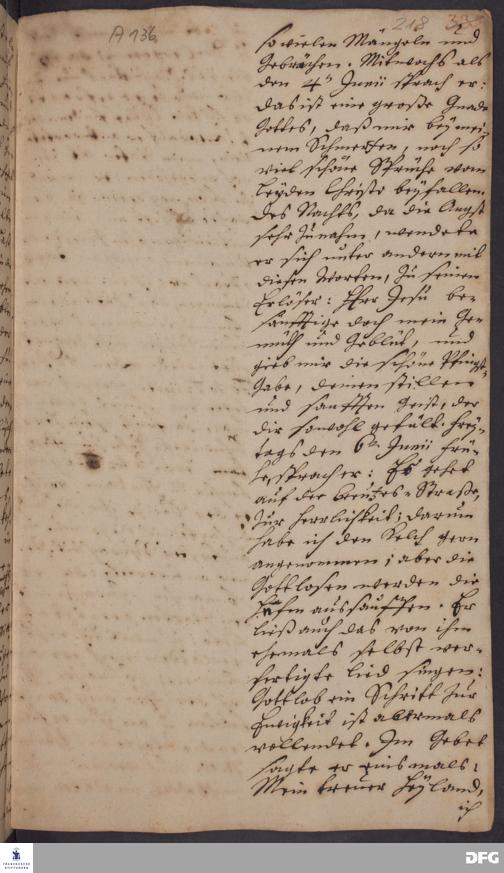 A 136
218
so vielen Mängeln und
Gebrächen. Mitwochs als
den 4n Junii sprach er:
das ist eine große Gnade
Gottes, daß mir bey mei-
nem Schmertzen, noch so
viel schöne Sprüche vom
Leyden Christo beyfallen.
des Nachts, da die Angst
sehr zunahm, wendete
er sich unter andern mit
diesen Worten, zu seinem
Erlöser: HErr Jesu be-
sänfftige doch mein Ge-
müth und Geblüt, und
gieb mir die schöne Pfingst-
Gabe, deinen stillen
und sanfften Geist, der
dir sowohl gefält. Frey-
tags den 6n Junii frü-
he, sprach er: Es gehet
auf der Creutzes-Straße,
zur Herrlichkeit; darum
habe ich den Kelch gern
angenommen; aber die
Gottlosen werden die
Häfen aussauffen. Er
ließ auch das von ihm
ehemals selbst ver-
fertigte Lied singen:
Gottlob ein Schritt zur
Ewigkeit ist abermals
vollendet. Im Gebet
sagte er eins mals:
Mein treuer Heyland,
ich
FRANCKESCHE
STIFTUNGEN
DFG